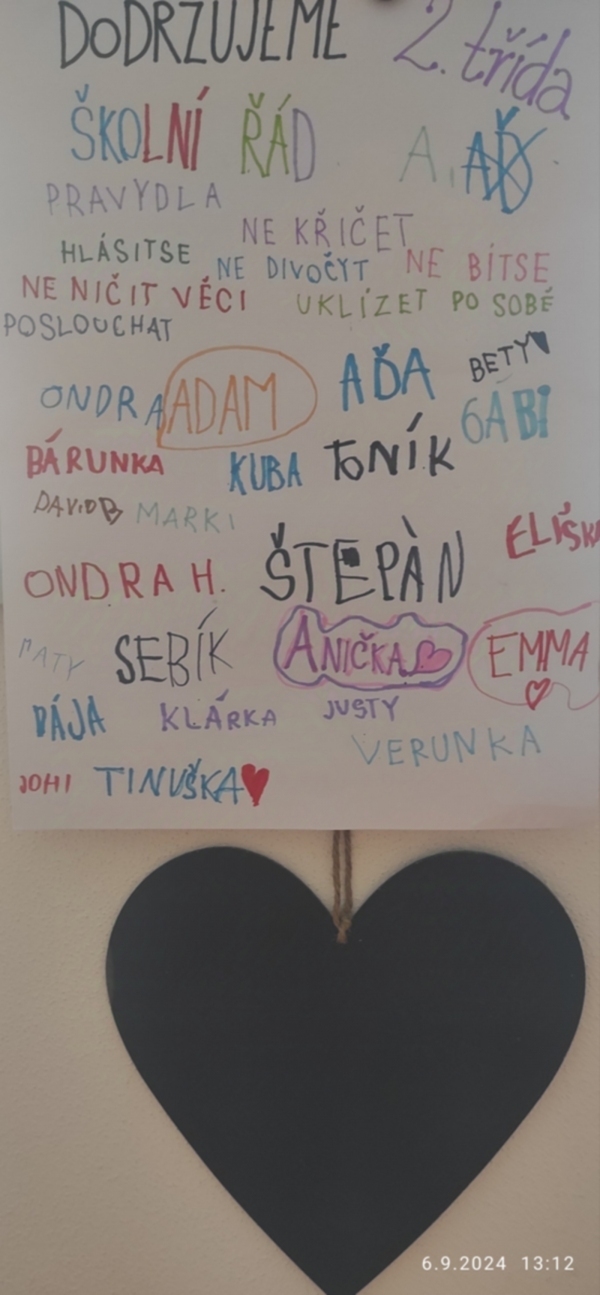 DODRZUJEME 2. třída
ŠKOLNÍ ŘÁD A.
PRAVYDLA
NE KŘIČET
HLÁSITSE NE DIVOČYT NE BÍTSE
NE NIČIT VĚCI UKLÍZET PO SOBĚ
POSLOUCHAT
ONDRA ADAM AĎA BETY
GABI
BÁRUNKA KUBA TONÍK
DAVID B MARKI
ELIŠKA
ONDRA H. ŠTEPÀN
MATY SEBÍK ANIČKA EMMA
DÁJA KLÁRKA JUSTY
VERUNKA
JOHI TINUŠKA
6.9.2024 13:12